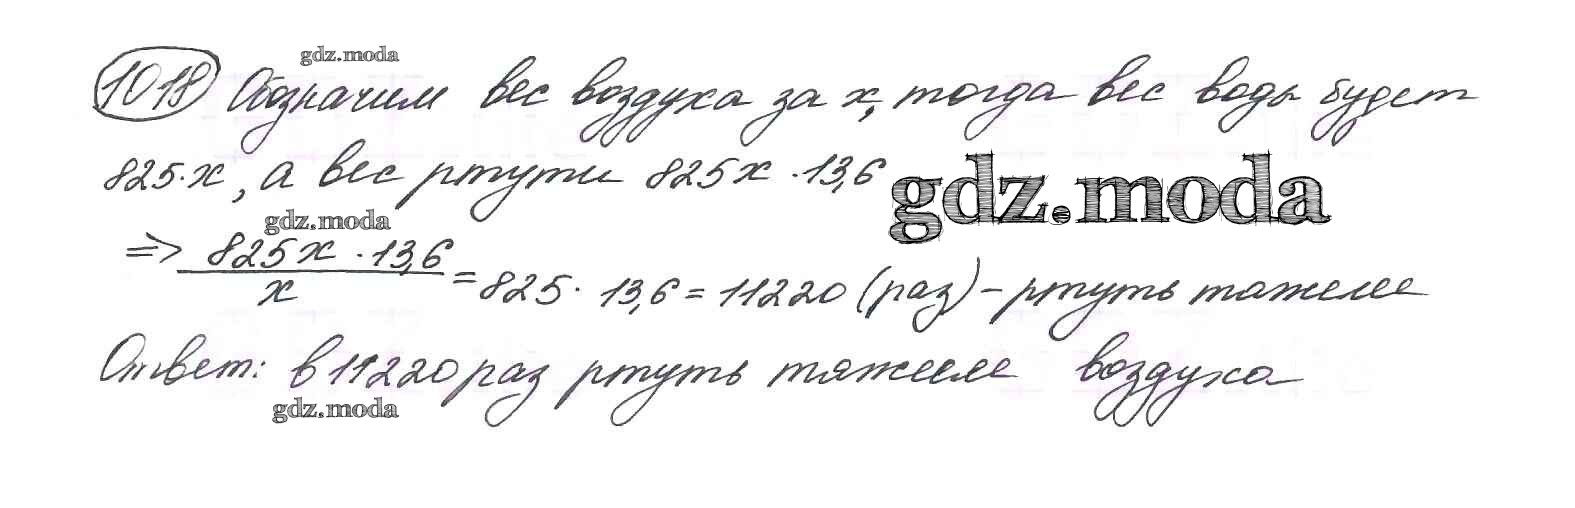 gdz.moda
1018 Обозначим вес воздуха за x, тогда вес воды будет
825·x, а вес ртути 825x ·13,6
gdz.moda
gdz.moda
=> 825x ·13,6 / x = 825· 13,6 = 11220 (раз) - ртуть тяжелее
Ответ: в 11220 раз ртуть тяжелее воздуха
gdz.moda